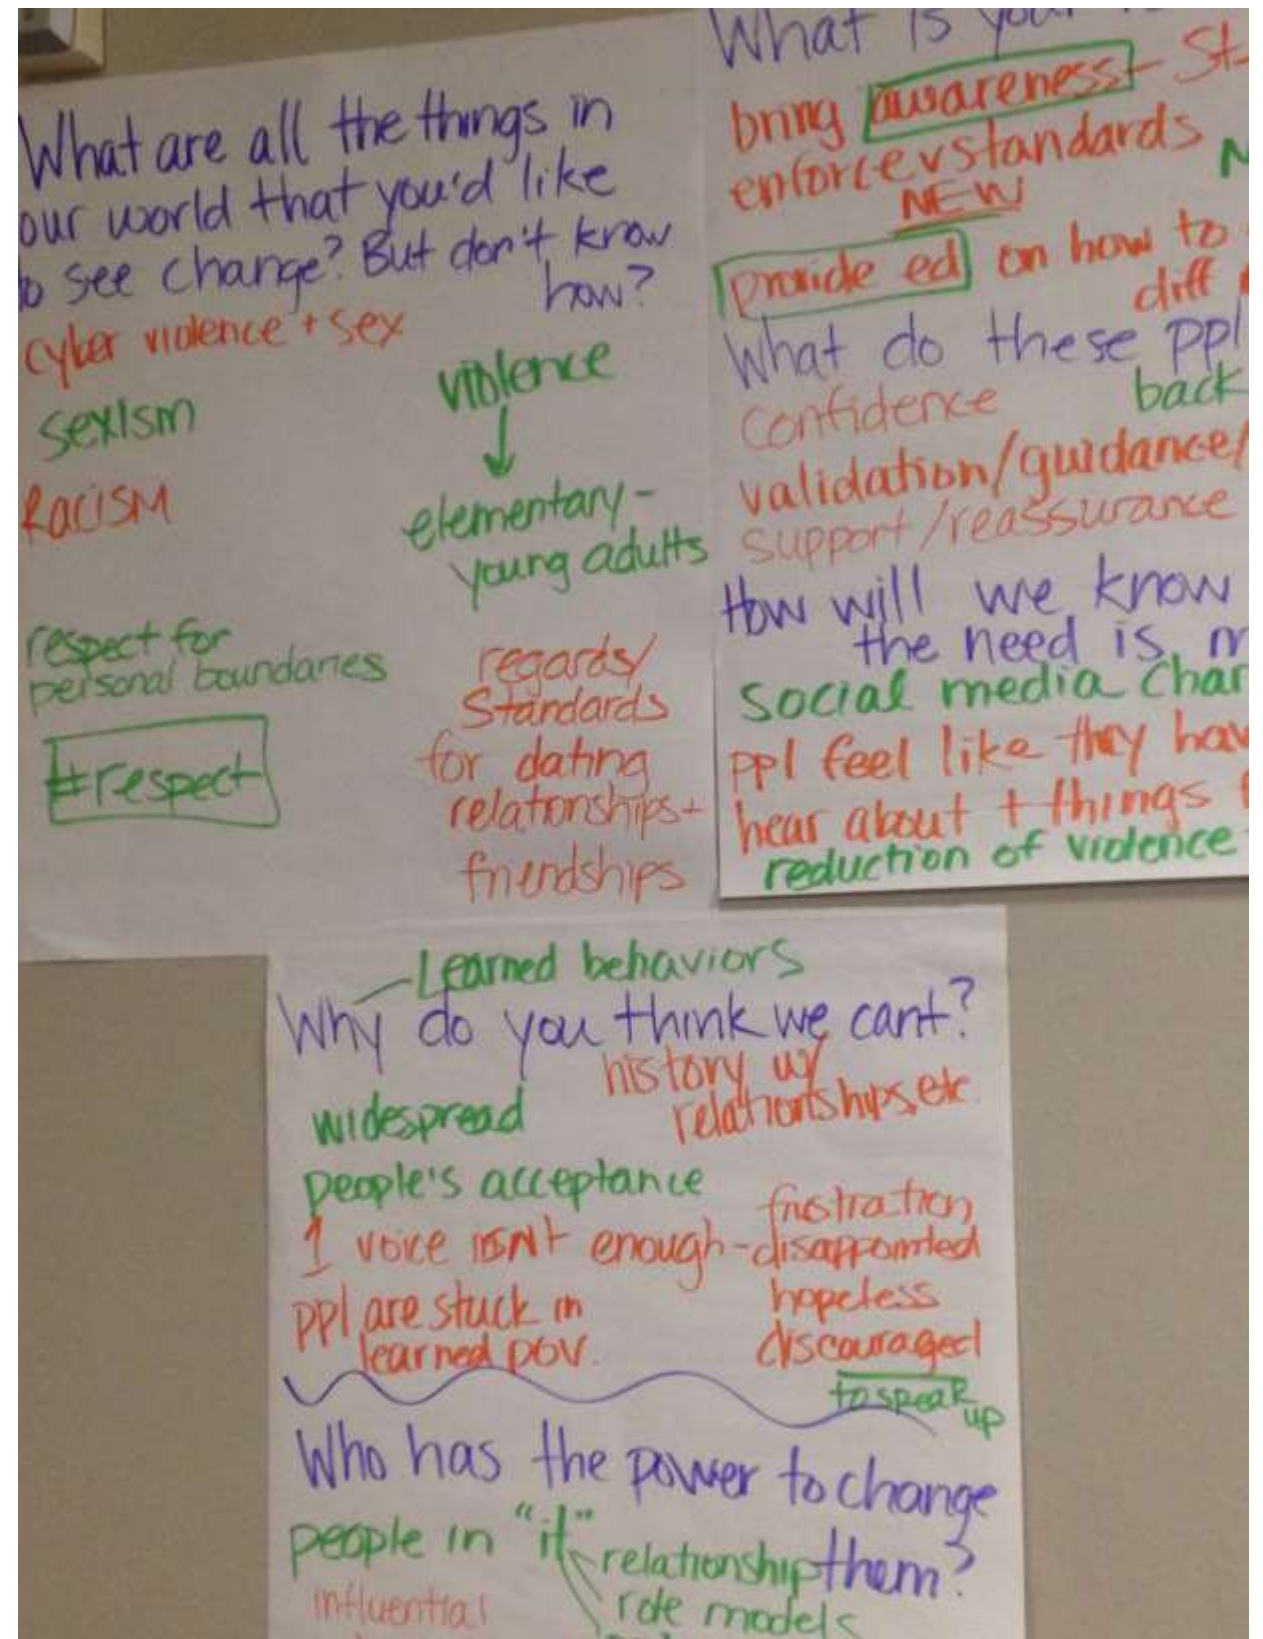 What are all the things in
our world that you'd like
to see change? But don't know
how?
cyber violence + sex
sexism
Racism
respect for
personal boundaries
#respect
violence
elementary-
young adults
regards/
Standards
for dating
relationships+
friendships
What is your
bring awareness- St
enforce v standards
NEW
provide ed on how to
diff
What do these ppl
confidence
back
validation/guidance/
support/reassurance
How will we know
the need is m
social media char
ppl feel like they hav
hear about + things
reduction of violence
Learned behaviors
Why do you think we cant?
history w/
relationships, etc.
widespread
people's acceptance
1 voice isn't enough-
frustration
disappointed
hopeless
discouraged
to speak
up
ppl are stuck in
learned pov.
Who has the power to change
them?
people in "it"
relationship
role models
influential